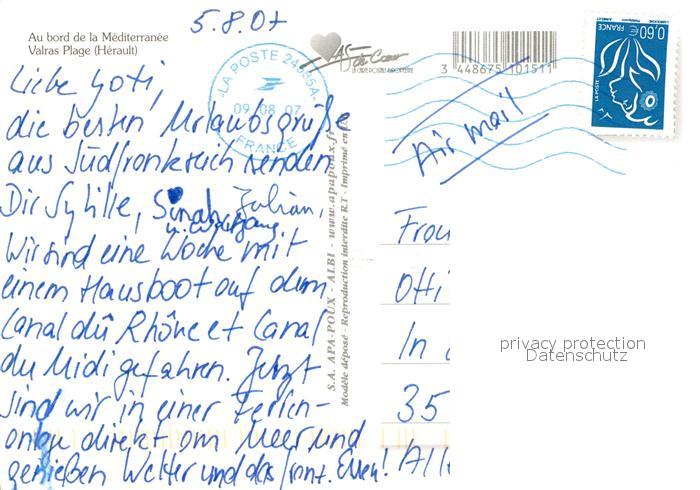 5.8.07
Au bord de la Méditerranée
Valras Plage (Hérault)
Liebe Goti,
die besten Urlaubsgrüße
aus Südfrankreich senden
Dir Sybille, Sinah, Julian,
u. Wolfgang
Wir sind eine Woche mit
einem Hausboot auf dem
Canal du Rhône et Canal
du Midi gefahren. Jetzt
sind wir in einer Ferien-
anlage direkt am Meer und
genießen Wetter und das franz. Essen!
LA POSTE
09-08-07
FRANCE
As de Cœur
LA CARTE POSTALE
3 448675 101511
FRANCE
0,60 €
LA POSTE
Air mail
S.A. APA-POUX - ALBI - www.apapoux.fr
Modèle déposé - Reproduction interdite R.T - Imprimé en
Frau
Otti
In
35
All
privacy protection
Datenschutz